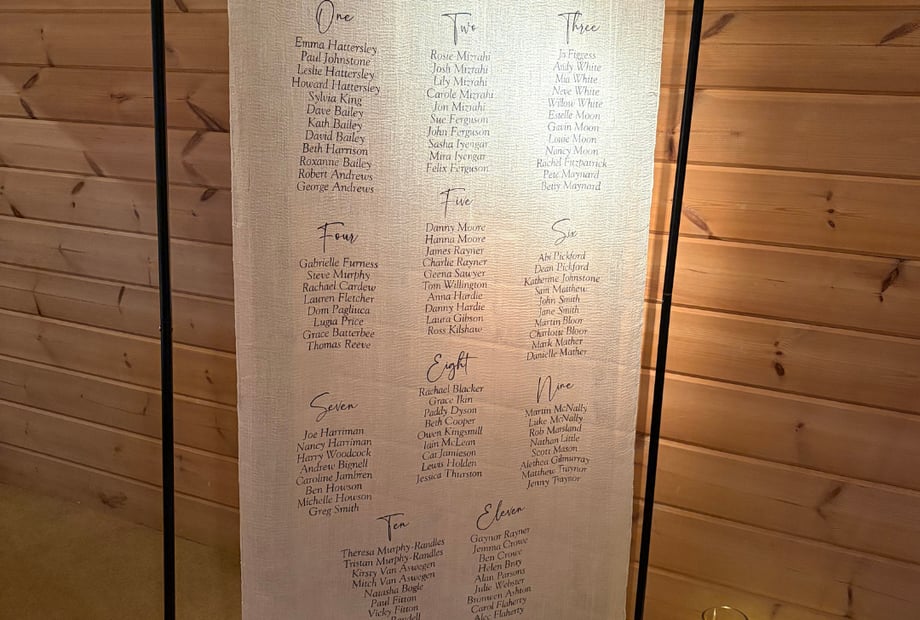 One
Emma Hattersley
Paul Johnstone
Leslie Hattersley
Howard Hattersley
Sylvia King
Dave Bailey
Kath Bailey
David Bailey
Beth Harrison
Roxanne Bailey
Robert Andrews
George Andrews
Two
Rosie Mizrahi
Josh Mizrahi
Lily Mizrahi
Carole Mizrahi
Jon Mizrahi
Sue Ferguson
John Ferguson
Sasha Iyengar
Mira Iyengar
Felix Ferguson
Three
Jo Figgess
Andy White
Mia White
Neve White
Willow White
Estelle Moon
Gavin Moon
Louie Moon
Nancy Moon
Rachel Fitzpatrick
Pete Maynard
Betty Maynard
Four
Gabrielle Furness
Steve Murphy
Rachael Cardew
Lauren Fletcher
Dom Pagliuca
Lugia Price
Grace Batterbee
Thomas Reeve
Five
Danny Moore
Hanna Moore
James Rayner
Charlie Rayner
Geena Sawyer
Tom Willington
Anna Hardie
Danny Hardie
Laura Gibson
Ross Kilshaw
Six
Abi Pickford
Dean Pickford
Katherine Johnstone
Sam Matthew
John Smith
Jane Smith
Martin Bloor
Charlotte Bloor
Mark Mather
Danielle Mather
Seven
Joe Harriman
Nancy Harriman
Harry Woodcock
Andrew Bignell
Caroline Jambren
Ben Howson
Michelle Howson
Greg Smith
Eight
Rachael Blacker
Grace Ikin
Paddy Dyson
Beth Cooper
Owen Kingsmill
Iain McLean
Cat Jamieson
Lewis Holden
Jessica Thurston
Nine
Martin McNally
Luke McNally
Rob Marsland
Nathan Little
Scott Mason
Alethea Gilmurray
Matthew Traynor
Jenny Traynor
Ten
Theresa Murphy-Randles
Tristan Murphy-Randles
Kirsty Van Aswegen
Mitch Van Aswegen
Natasha Bogle
Paul Fitton
Vicky Fitton
Eleven
Gaynor Rayner
Jemma Crowe
Ben Crowe
Helen Bray
Alan Parsons
Julie Webster
Bronwen Ashton
Carol Flaherty
Alec Flaherty